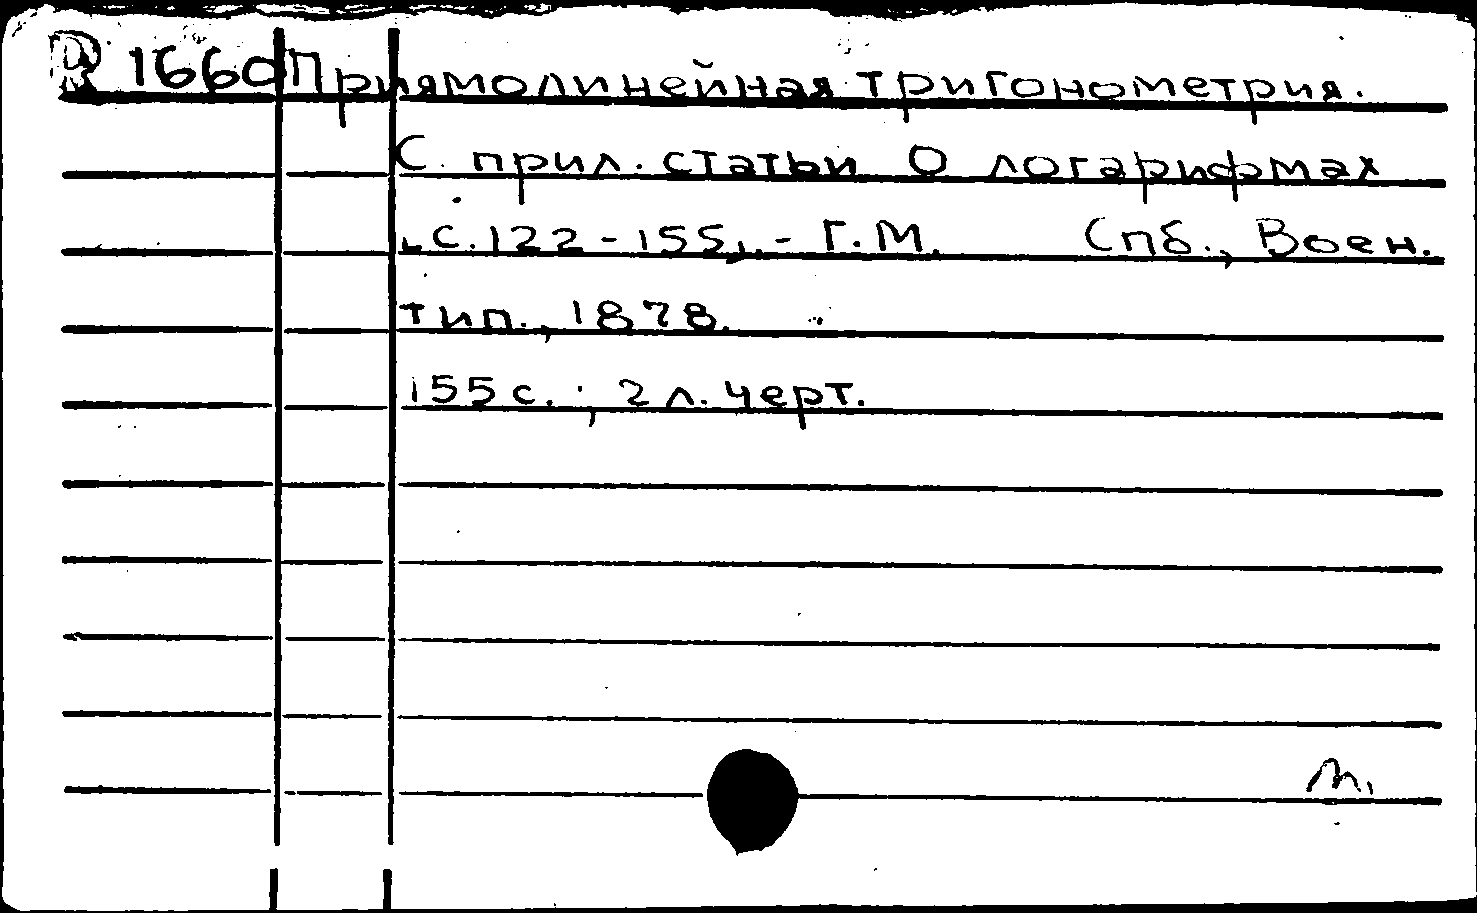 R 1660 Приямолинейная тригонометрия.
С. прил. статьи О логарифмах
[с. 122-155]. - Г.М. Спб., Воен.
тип., 1878.
155 с. ; 2 л. черт.